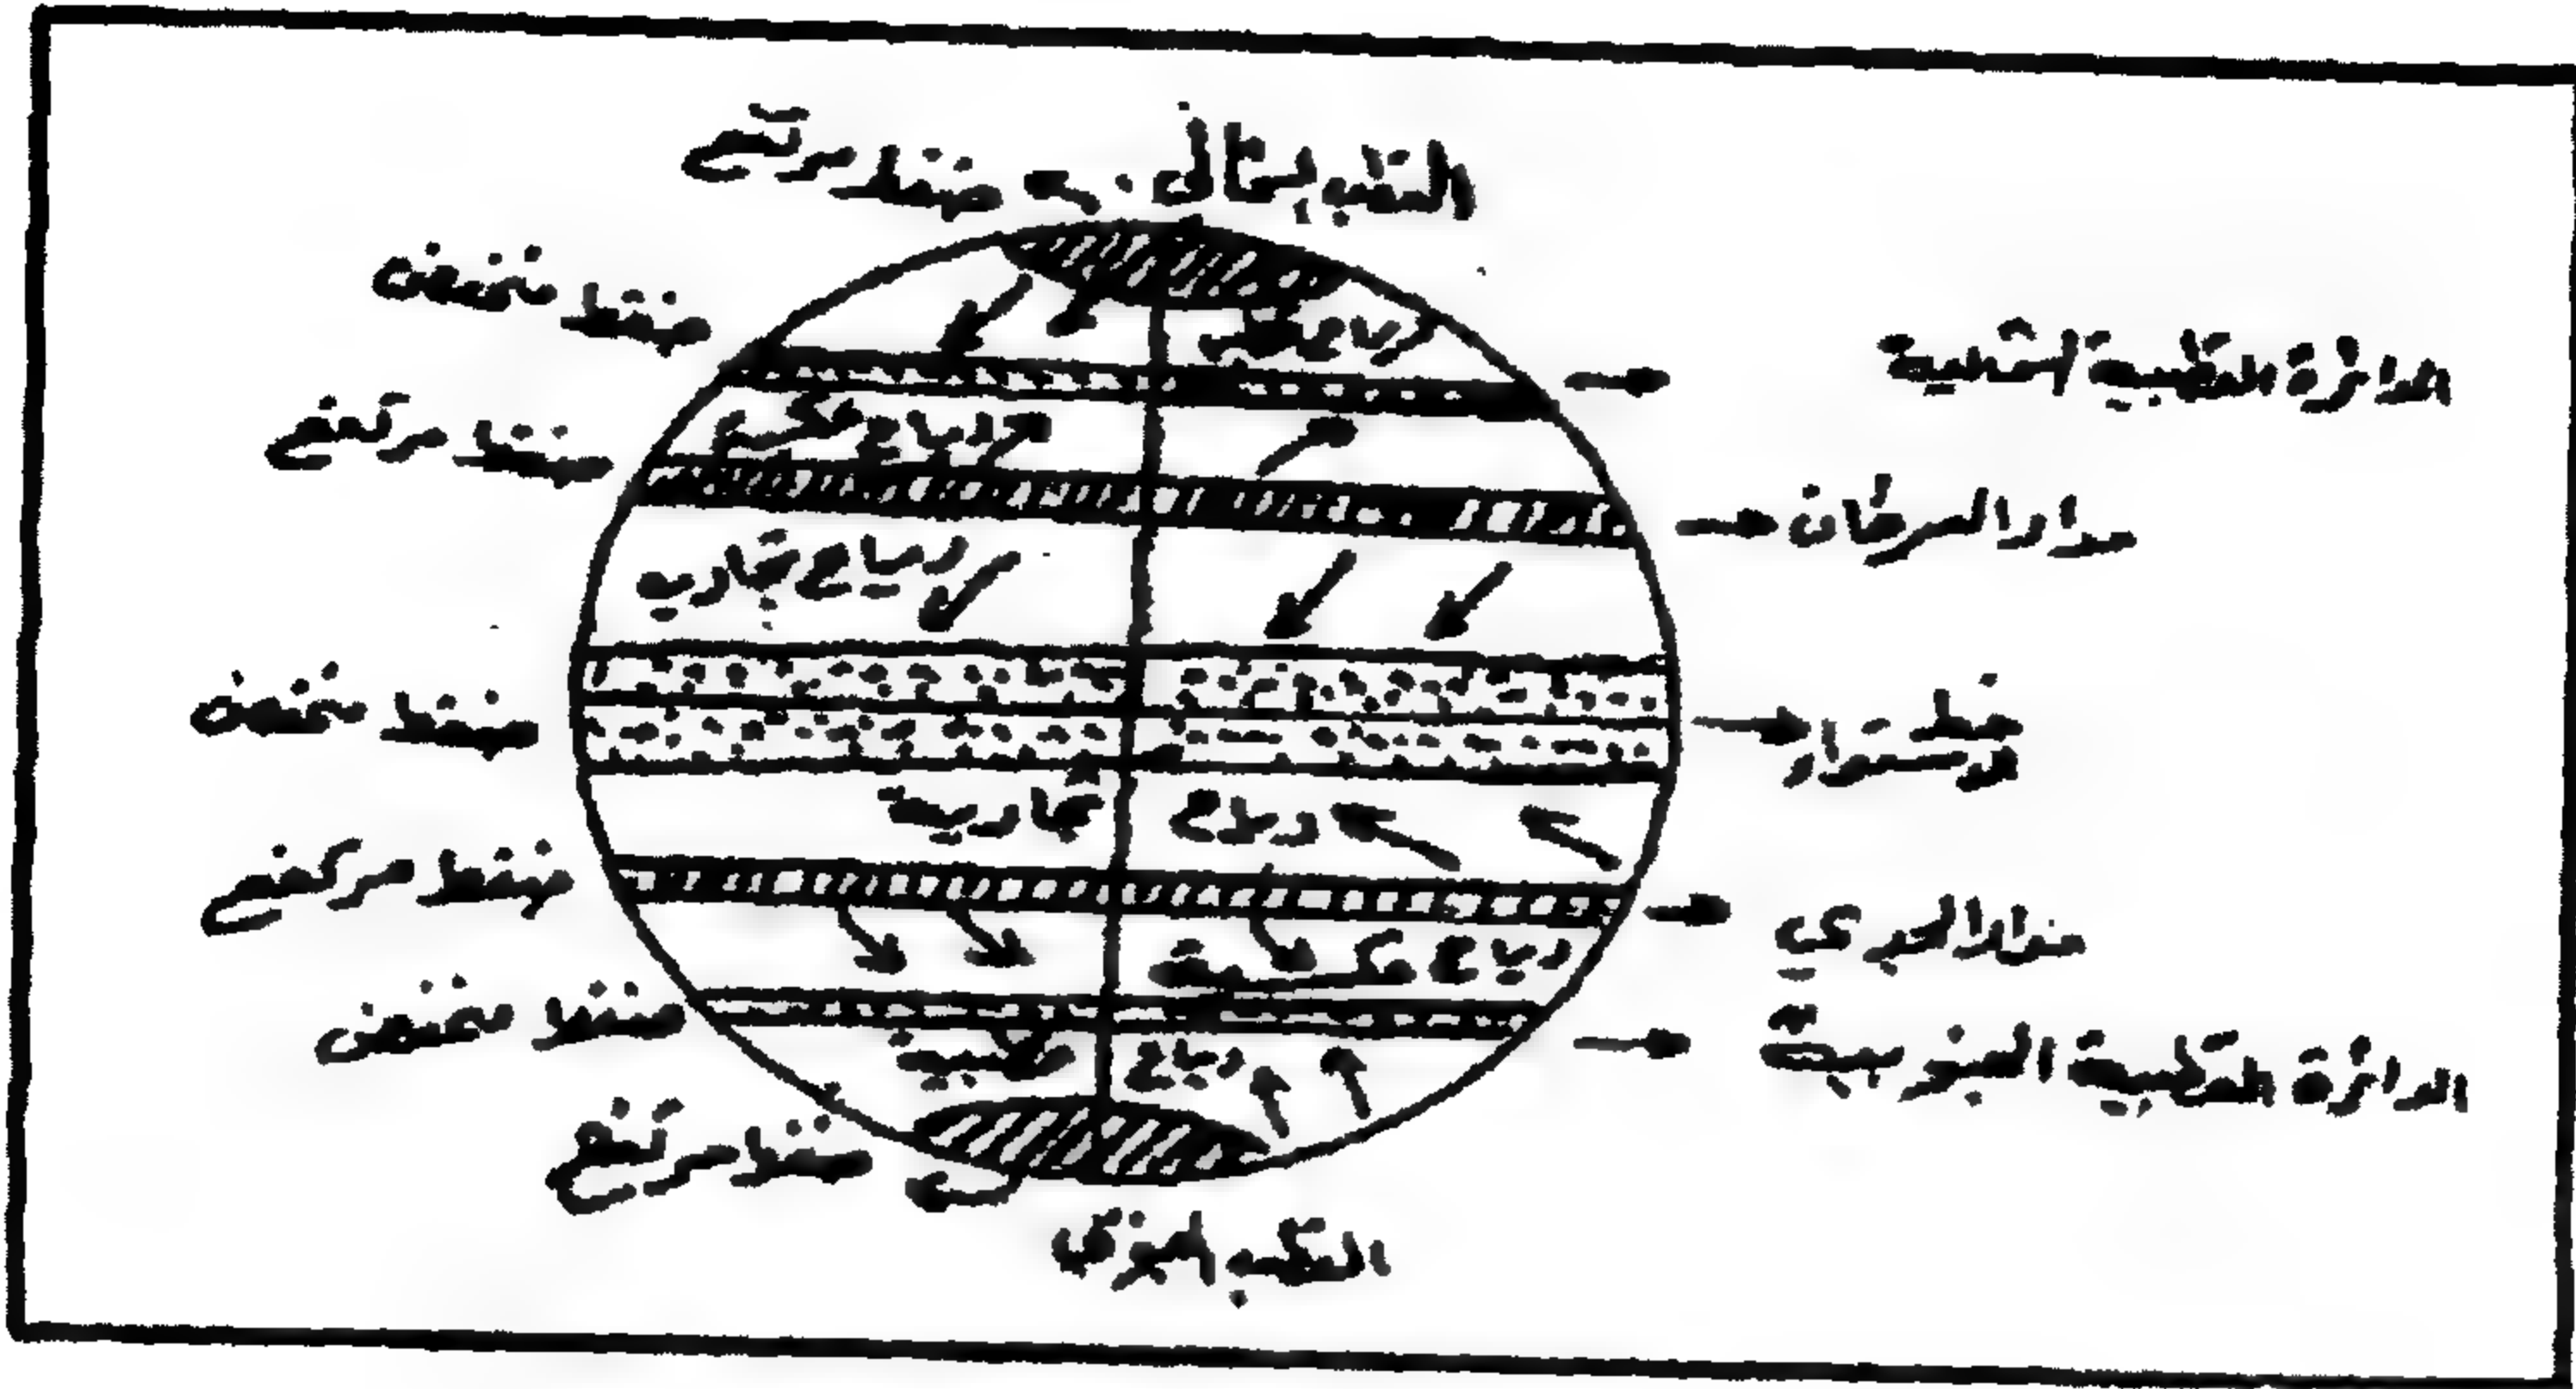 القطب الشمالي
ضغط مرتفع
ضغط منخفض
رياح قطبية
الدائرة القطبية الشمالية
ضغط مرتفع
رياح عكسية
مدار السرطان
رياح تجارية
ضغط منخفض
خط
الاستواء
رياح تجارية
ضغط مرتفع
مدار الجدي
رياح عكسية
ضغط منخفض
الدائرة القطبية الجنوبية
رياح قطبية
ضغط مرتفع
القطب الجنوبي